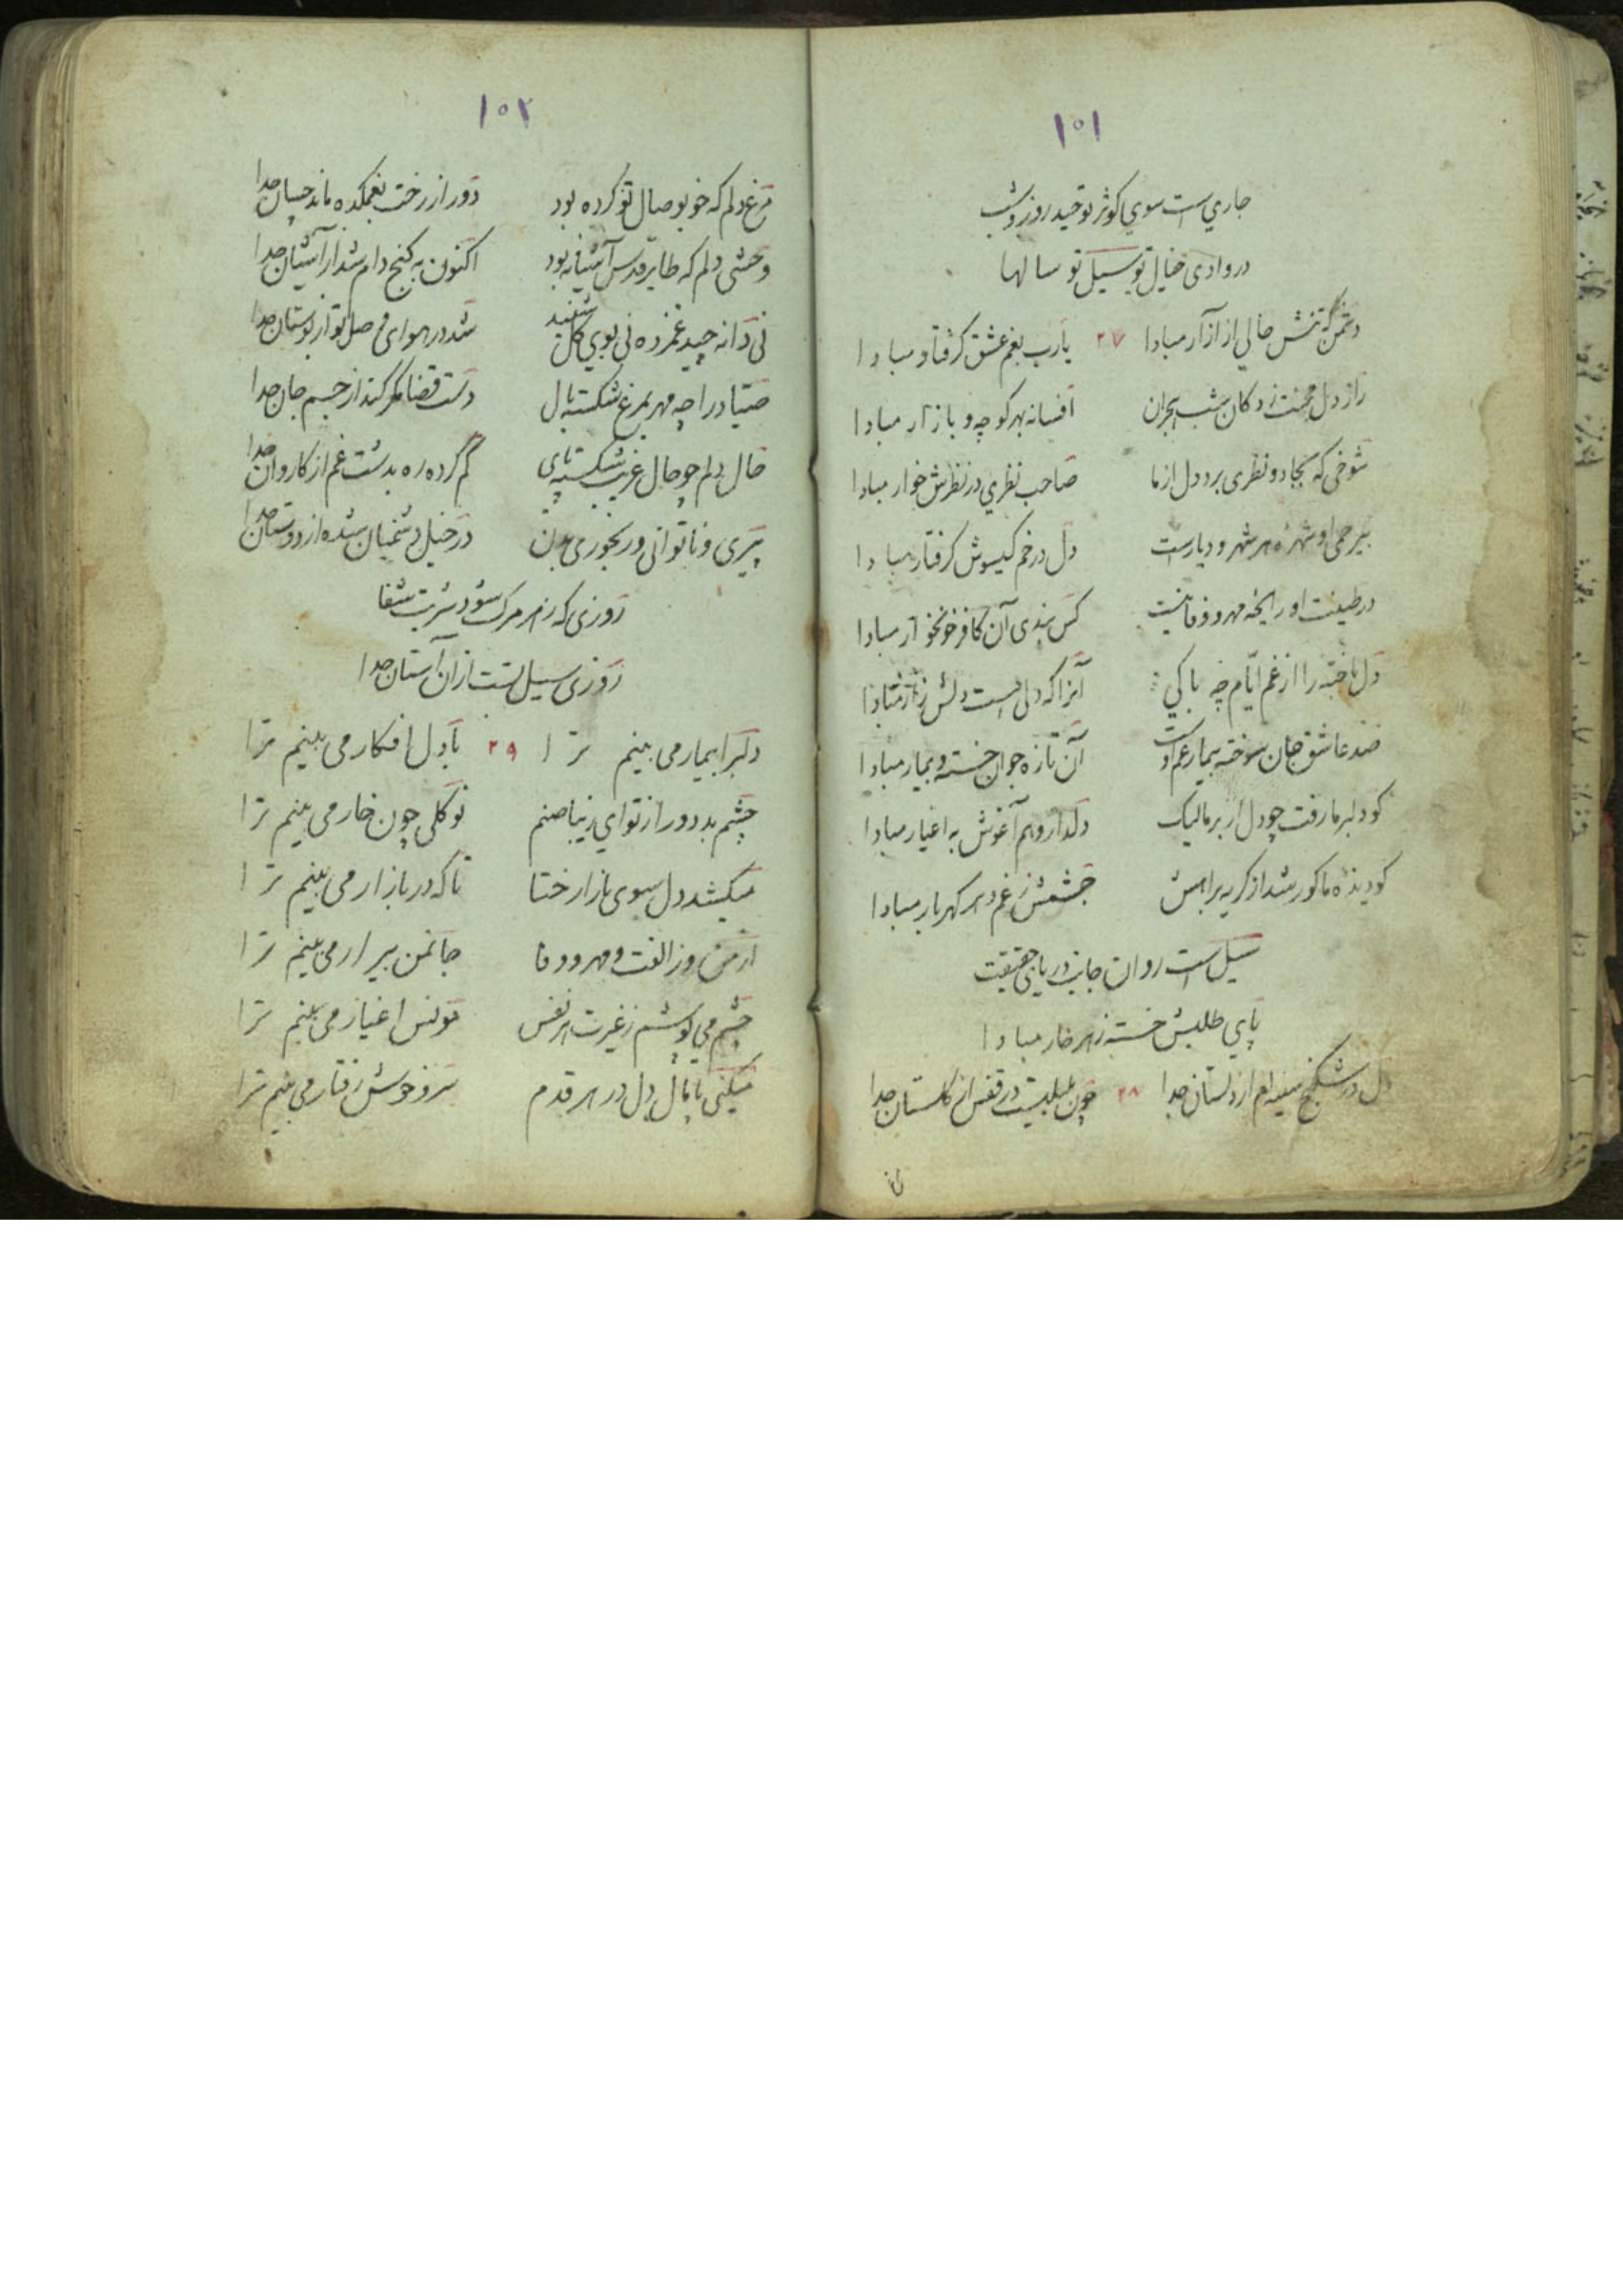 ۱۰۱
جاری است سوی کوثر توحید روز و شب
در وادی خیال تو سیل تو سالها
دشمن که تنش خالی از آزار مبادا ۲۷ یارب بغم عشق گرفتار مبادا
راز دل محنت زدکان شب هجران افسانه بهر کوچه و بازار مبادا
شوخی که بجادو نظری برد دل از ما صاحب نظری در نظرش خوار مبادا
بیرحمی او شهره هر شهر و دیارست دل در خم کیسوش کرفتار مبادا
در طینت او رایحه مهر و وفا نیست کس بندی آن کافر خونخوار مبادا
دل باخته را از غم ایام چه باکی آنرا که دلی است دلش زار مبادا
صد عاشق جان سوخته بیمار غم اوست آن تازه جوان خسته و بیمار مبادا
کو دلبر ما رفت چو دل از بر ما لیک دلدار وهم آغوش به اغیار مبادا
کو دیده ما کور شد از کریه براهش چشمش ز غم دهر کهربار مبادا
سیل است روان جانب دریای حقیقت
پای طلبش خسته ز هر خار مبادا
دل در شکنج سینه ام از دلستان جدا ۲۸ چون بلبلیست در قفس از کلستان جدا
۱۰۲
مرغ دلم که خو بوصال تو کرده بود دور از رخت بغمکده ماند چسان جدا
وحشی دلم که طایر قدس آشیانه بود اکنون به کنج دام شد از آشیان جدا
نی دانه چید غمزده نی بوی کل شنید شد در هوای وصل تو از بوستان جدا
صیاد را چه مهر بمرغ شکسته بال دست قضا مکر کند از جسم جان جدا
حال دلم چو حال غریب شکسته پای کم کرده ره بدشت غم از کاروان جدا
پیری و ناتوانی و رنجوری بدن در خیل دشمنان شده از دوستان جدا
روزی که زهر مرک شود شربت شفا
روزی سیل تست ازان آستان جدا
دلبرا بیمار می بینم ترا ۲۹ با دل افکار می بینم ترا
چشم بد دور از تو ای زیبا صنم نو کلی چون خار می بینم ترا
میکشد دل سوی بازار ختا تا که در بازار می بینم ترا
از من و ز الفت و مهر و وفا جانمن بیزار می بینم ترا
چشم می پوشم ز غیرت هر نفس مونس اغیار می بینم ترا
میکنی پامال دل در هر قدم سرو خوش رفتار می بینم ترا